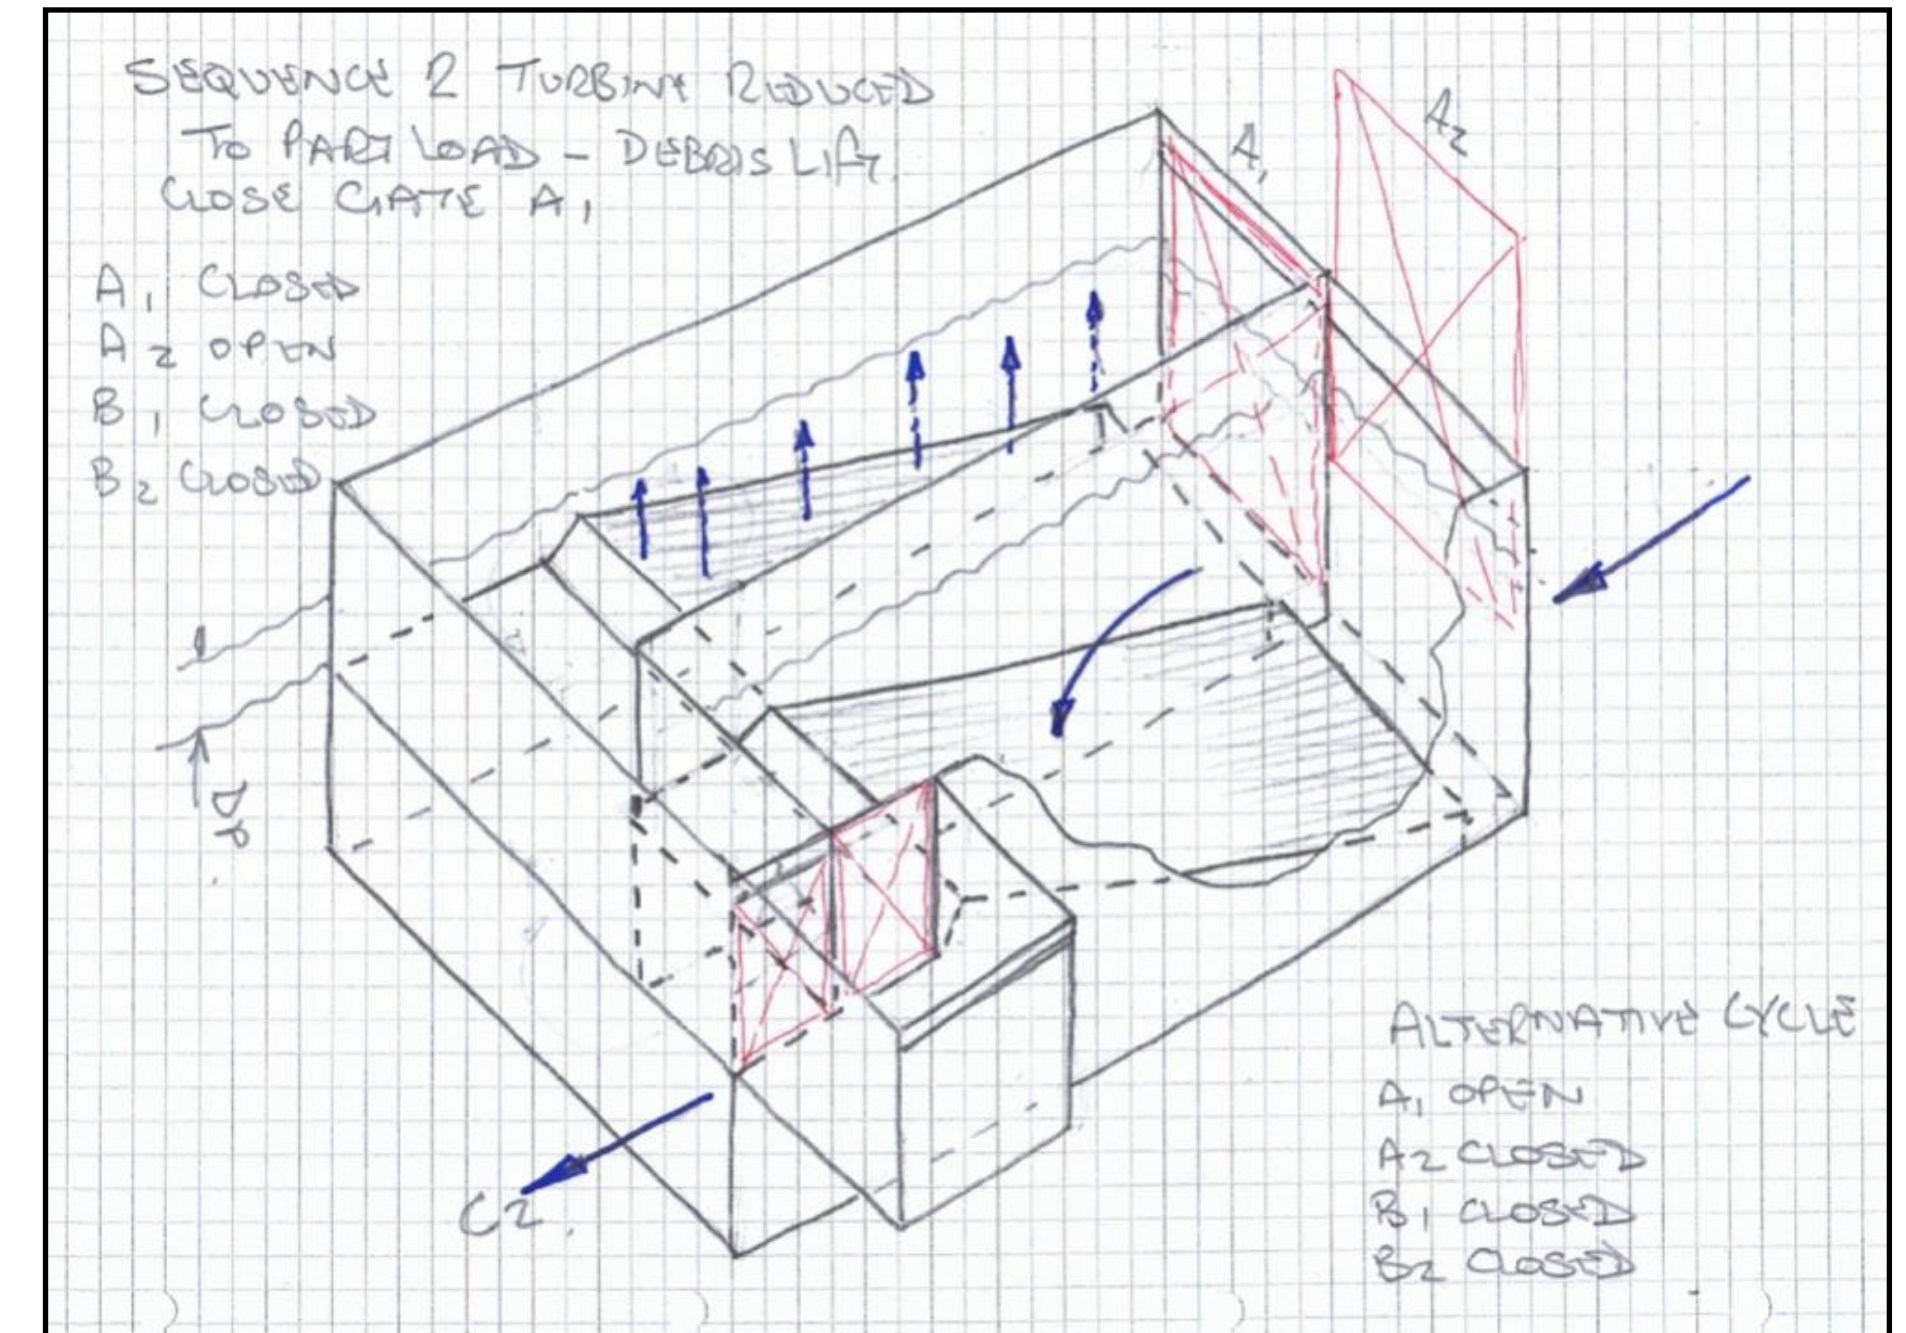 SEQUENCE 2 TURBINE REDUCED
TO PART LOAD - DEBRIS LIFT.
CLOSE GATE A1
A1 CLOSED
A2 OPEN
B1 CLOSED
B2 CLOSED
A1
A2
DP
C2.
ALTERNATIVE CYCLE
A1 OPEN
A2 CLOSED
B1 CLOSED
B2 CLOSED